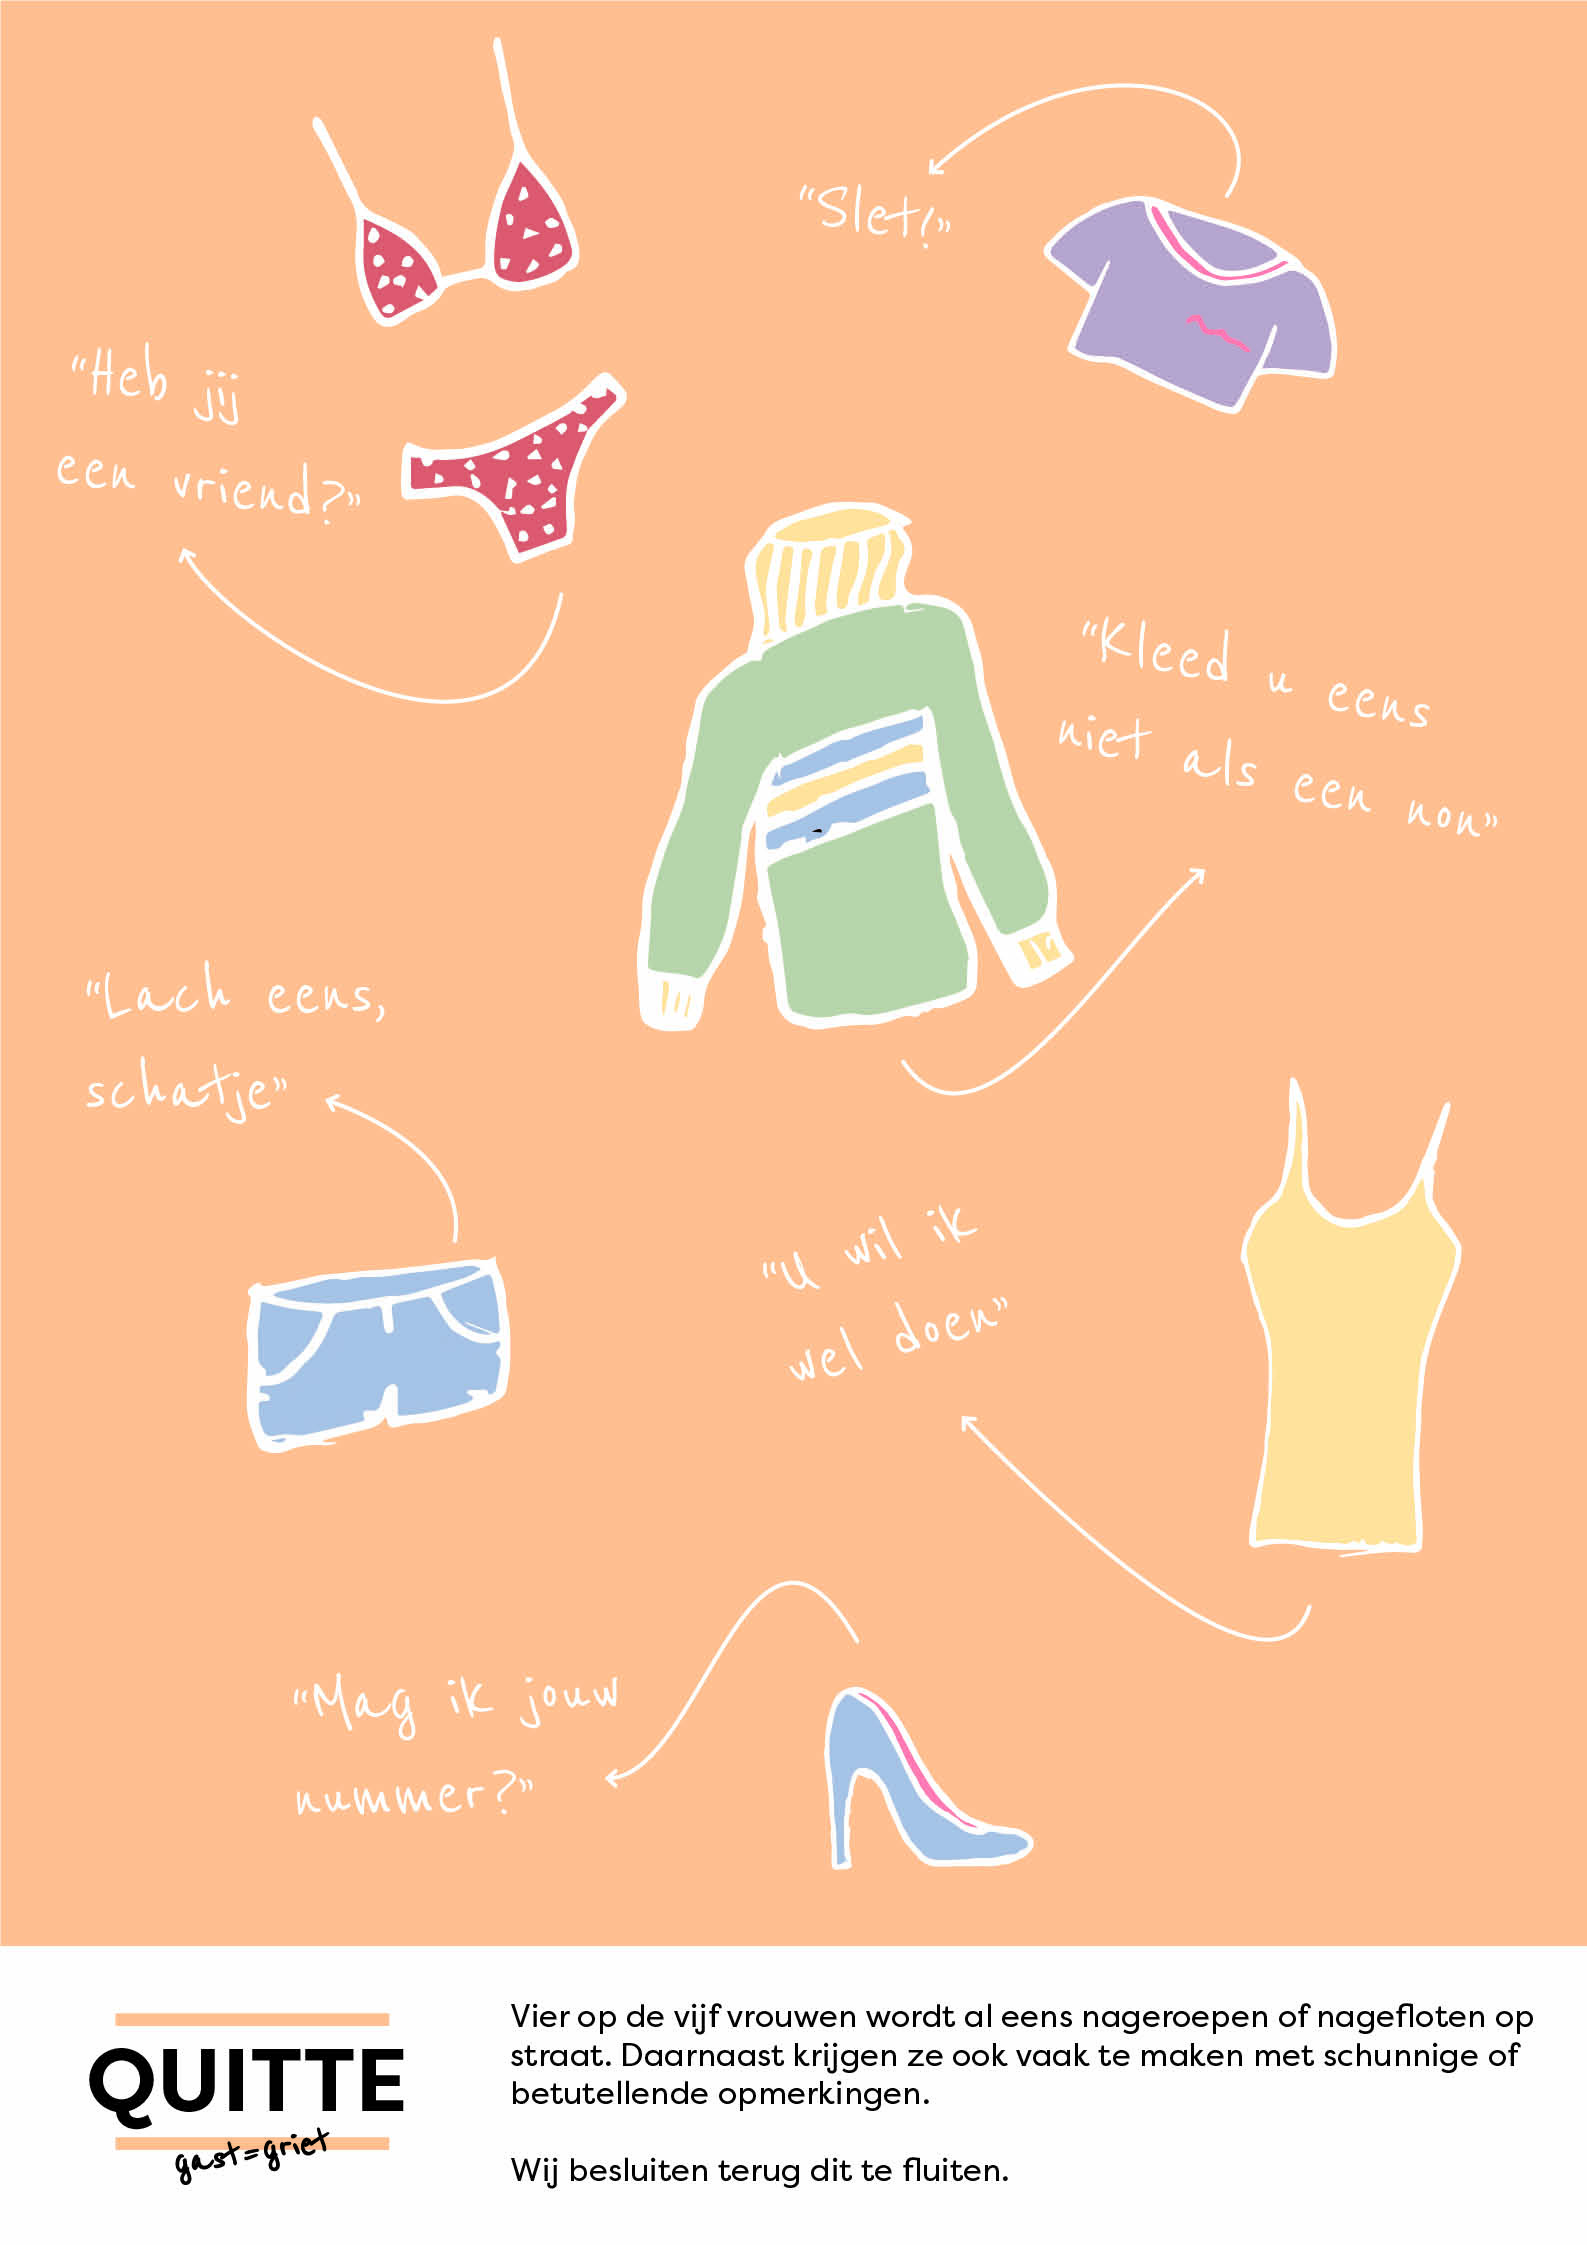 “Slet!”
“Heb jij
een vriend?”
“Kleed u eens
niet als een non”
“Lach eens,
schatje”
“U wil ik
wel doen”
“Mag ik jouw
nummer?”
QUITTE
gast=griet
Vier op de vijf vrouwen wordt al eens nageroepen of nagefloten op
straat. Daarnaast krijgen ze ook vaak te maken met schunnige of
betutellende opmerkingen.
Wij besluiten terug dit te fluiten.